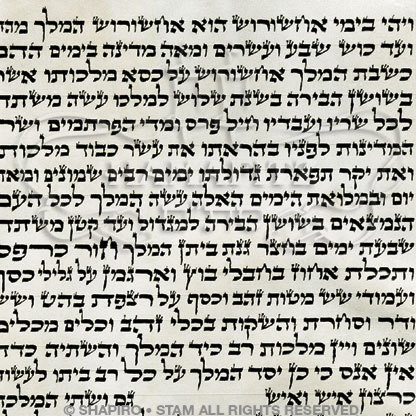 ויהי בימי אחשורוש הוא אחשורוש המלך מהד
ועד כוש שבע ועשרים ומאה מדינה בימים ההם
כשבת המלך אחשורוש על כסא מלכותו אשר
בשושן הבירה בשנת שלוש למלכו עשה משתה
לכל שריו ועבדיו חיל פרס ומדי הפרתמים ושר
המדינות לפניו בהראתו את עשר כבוד מלכותו
ואת יקר תפארת גדולתו ימים רבים שמונים ומאת
יום ובמלואת הימים האלה עשה המלך לכל העם
הנמצאים בשושן הבירה למגדול ועד קטן משתה
שבעת ימים בחצר גנת ביתן המלך חור כרפס
ותכלת אחוז בחבלי בוץ וארגמן על גלילי כסף
ועמודי שש מטות זהב וכסף על רצפת בהט ושש
ודר וסחרת והשקות בכלי זהב וכלים מכלים
שונים ויין מלכות רב כיד המלך והשתיה כדת
אין אנס כי כן יסד המלך על כל רב ביתו לעשות
כרצון איש ואיש גם ושתי המלכה
© SHAPIRO • STAM ALL RIGHTS RESERVED.